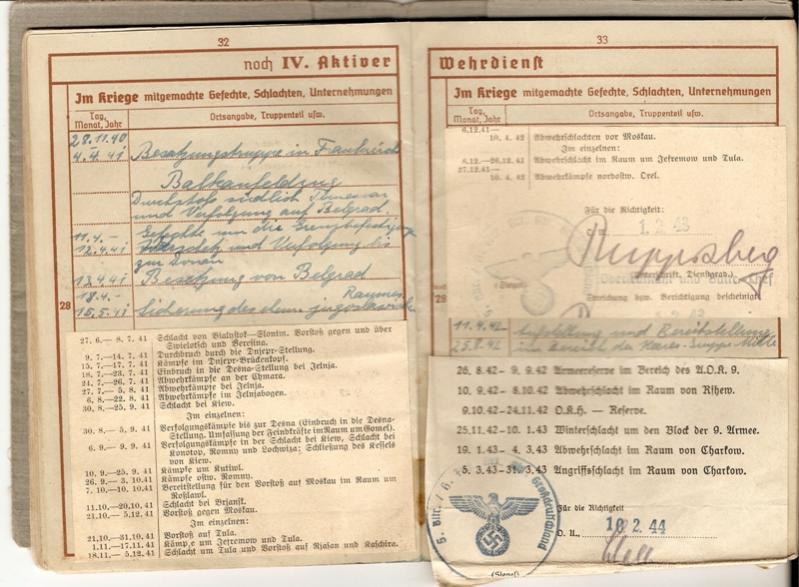 32
noch IV. Aktiver
Im Kriege mitgemachte Gefechte, Schlachten, Unternehmungen
Tag, Monat, Jahr
Ortsangabe, Truppenteil usw.
28.11.40
4.4.41
Besatzungstruppe in Frankreich
Balkanfeldzug
Durchstoß südlich
und Verfolgung auf Belgrad.
11.4.–
Gefechte um die Grenzbefestigung
12.4.41
und Verfolgung bis
zur Donau
13.4.41 Besetzung von Belgrad
18.4.–
Raumes
15.5.41 Sicherung des ehem. jugoslawisch
28
27. 6.— 8. 7. 41 Schlacht von Bialystok–Slonim. Vorstoß gegen und über
Swislotsch und Beresina.
9. 7.—14. 7. 41 Durchbruch durch die Dnjepr-Stellung.
15. 7.—17. 7. 41 Kämpfe im Dnjepr-Brückenkopf.
18. 7.—23. 7. 41 Einbruch in die Desna-Stellung bei Jelnja.
24. 7.—26. 7. 41 Abwehrkämpfe an der Chmara.
27. 7.— 5. 8. 41 Abwehrkämpfe bei Jelnja.
6. 8.—22. 8. 41 Abwehrkämpfe im Jelnjabogen.
30. 8.—25. 9. 41 Schlacht bei Kiew.
Im einzelnen:
30. 8.— 5. 9. 41 Verfolgungskämpfe bis zur Desna (Einbruch in die Desna-
Stellung. Umfassung der Feindkräfte im Raum um Gomel).
6. 9.— 9. 9. 41 Verfolgungskämpfe in der Schlacht bei Kiew, Schlacht bei
Konotop, Romny und Lochwiza; Schließung des Kessels
von Kiew.
10. 9.—25. 9. 41 Kämpfe um Putiwl.
26. 9.— 3. 10. 41 Kämpfe ostw. Romny.
7. 10.—10. 10. 41 Bereitstellung für den Vorstoß auf Moskau im Raum um
Roßlawl.
11.10.—20.10. 41 Schlacht bei Brjansk.
21.10.— 5.12. 41 Vorstoß gegen Moskau.
Im einzelnen:
21.10.—31.10. 41 Vorstoß auf Tula.
1.11.—17.11. 41 Kämpfe um Jefremow und Tula.
18.11.— 5.12. 41 Schlacht um Tula und Vorstoß auf Rjasan und Kaschira.
33
Wehrdienst
Im Kriege mitgemachte Gefechte, Schlachten, Unternehmungen
Tag, Monat, Jahr
Ortsangabe, Truppenteil usw.
6.12. 41—
10. 4. 42 Abwehrschlachten vor Moskau.
Im einzelnen:
6.12.—26.12. 41 Abwehrschlacht im Raum um Jefremow und Tula.
27.12. 41—
10. 4. 42 Abwehrkämpfe nordostw. Orel.
Für die Richtigkeit:
1. 2. 43
Ruppersberg
(Unterschrift, Dienstgrad.)
(Stempel)
Streichung bzw. Berichtigung bescheinigt
28
11.4.42– Aufstellung und Bereitstellung
25.8.42 im Bereich der Heeres-Gruppe Mitte
26. 8.42- 9. 9.42 Armeereserve im Bereich des A.O.K. 9.
10. 9.42- 8.10.42 Abwehrschlacht im Raum von Rshew.
9.10.42-24.11.42 O.K.H. — Reserve.
25.11.42-10. 1.43 Winterschlacht um den Block der 9. Armee.
19. 1.43- 4. 3.43 Abwehrschlacht im Raum von Charkow.
5. 3.43-31. 3.43 Angriffsschlacht im Raum von Charkow.
Großdeutschland
Für die Richtigkeit
O. U., 10 2. 44
(Stempel)